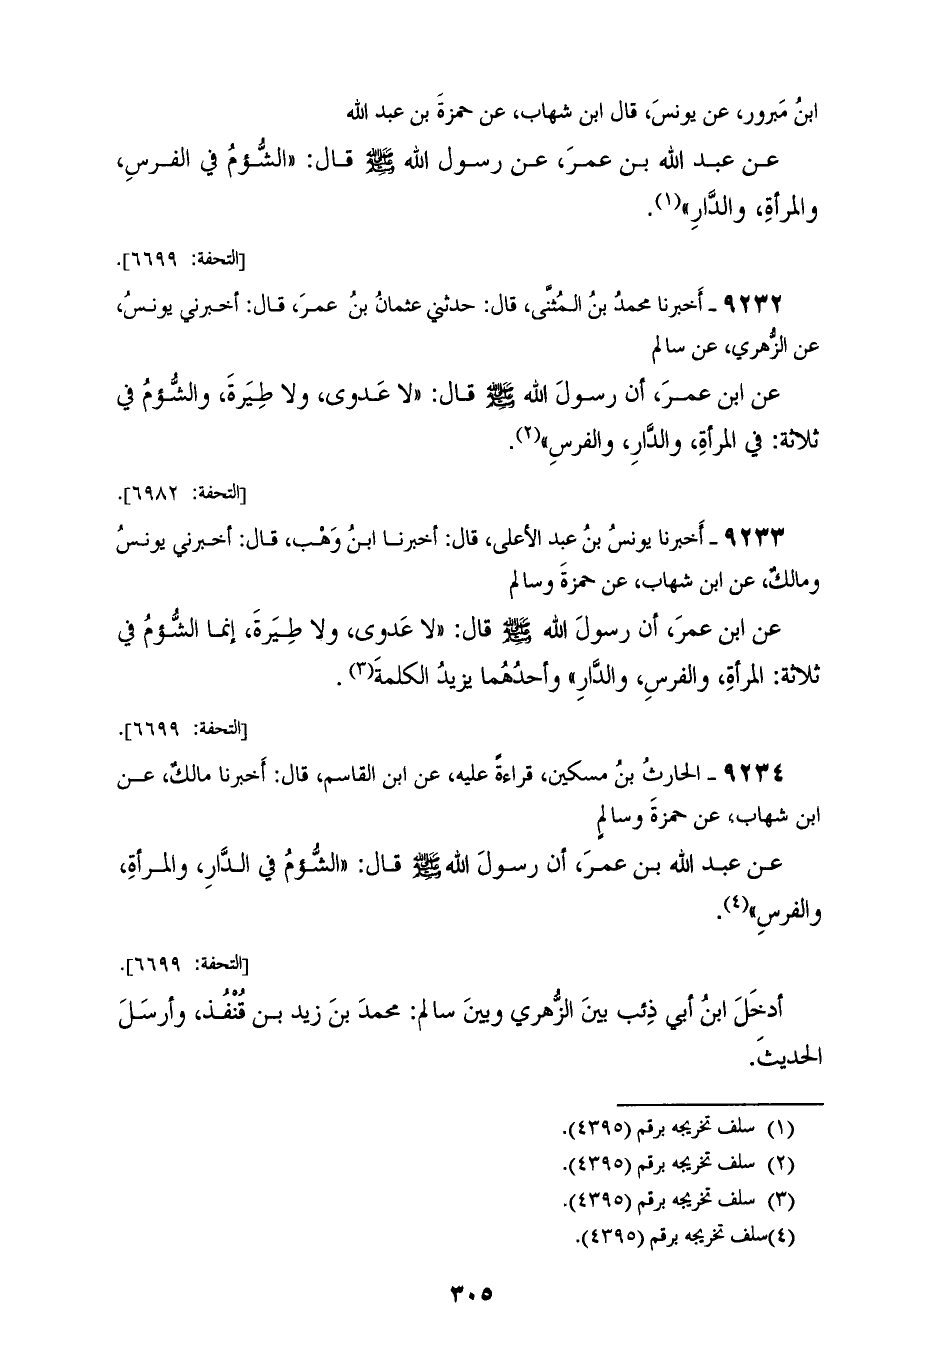 ابنُ مَبرور، عن يونسَ، قال ابن شهاب، عن حمزةَ بن عبد الله
عن عبد الله بن عمرَ، عن رسول الله ﷺ قال: «الشُّؤمُ في الفرسِ،
والمرأةِ، والدَّارِ»(١).
[التحفة: ٦٦٩٩].
٩٢٣٢ ـ أَخبرنا محمدُ بنُ المُثنَّى، قال: حدثني عثمانُ بنُ عمرَ، قال: أخبرني يونسُ،
عن الزُّهري، عن سالم
عن ابن عمرَ، أن رسولَ الله ﷺ قال: «لا عَدوى، ولا طِيَرةَ، والشُّؤمُ في
ثلاثة: في المرأةِ، والدَّارِ، والفرسِ»(٢).
[التحفة: ٦٩٨٢].
٩٢٣٣ ـ أَخبرنا يونسُ بنُ عبد الأعلى، قال: أخبرنا ابنُ وَهْب، قال: أخبرني يونسُ
ومالكٌ، عن ابن شهاب، عن حمزةَ وسالم
عن ابن عمرَ، أن رسولَ الله ﷺ قال: «لا عَدوى، ولا طِيَرةَ، إنما الشُّؤمُ في
ثلاثة: المرأةِ، والفرسِ، والدَّارِ» وأحدُهُما يزيدُ الكلمةَ(٣).
[التحفة: ٦٦٩٩].
٩٢٣٤ ـ الحارثُ بنُ مسكين، قراءةً عليه، عن ابن القاسم، قال: أَخبرنا مالكٌ، عن
ابن شهاب، عن حمزةَ وسالمٍ
عن عبد الله بن عمرَ، أن رسولَ الله ﷺ قال: «الشُّؤمُ في الدَّارِ، والمرأةِ،
والفرسِ»(٤).
[التحفة: ٦٦٩٩].
أدخَلَ ابنُ أبي ذِئب بينَ الزُّهري وبينَ سالم: محمدَ بنَ زيد بن قُنْفُذ، وأرسَلَ
الحديثَ.
(١) سلف تخريجه برقم (٤٣٩٥).
(٢) سلف تخريجه برقم (٤٣٩٥).
(٣) سلف تخريجه برقم (٤٣٩٥).
(٤)سلف تخريجه برقم (٤٣٩٥).
٣٠٥